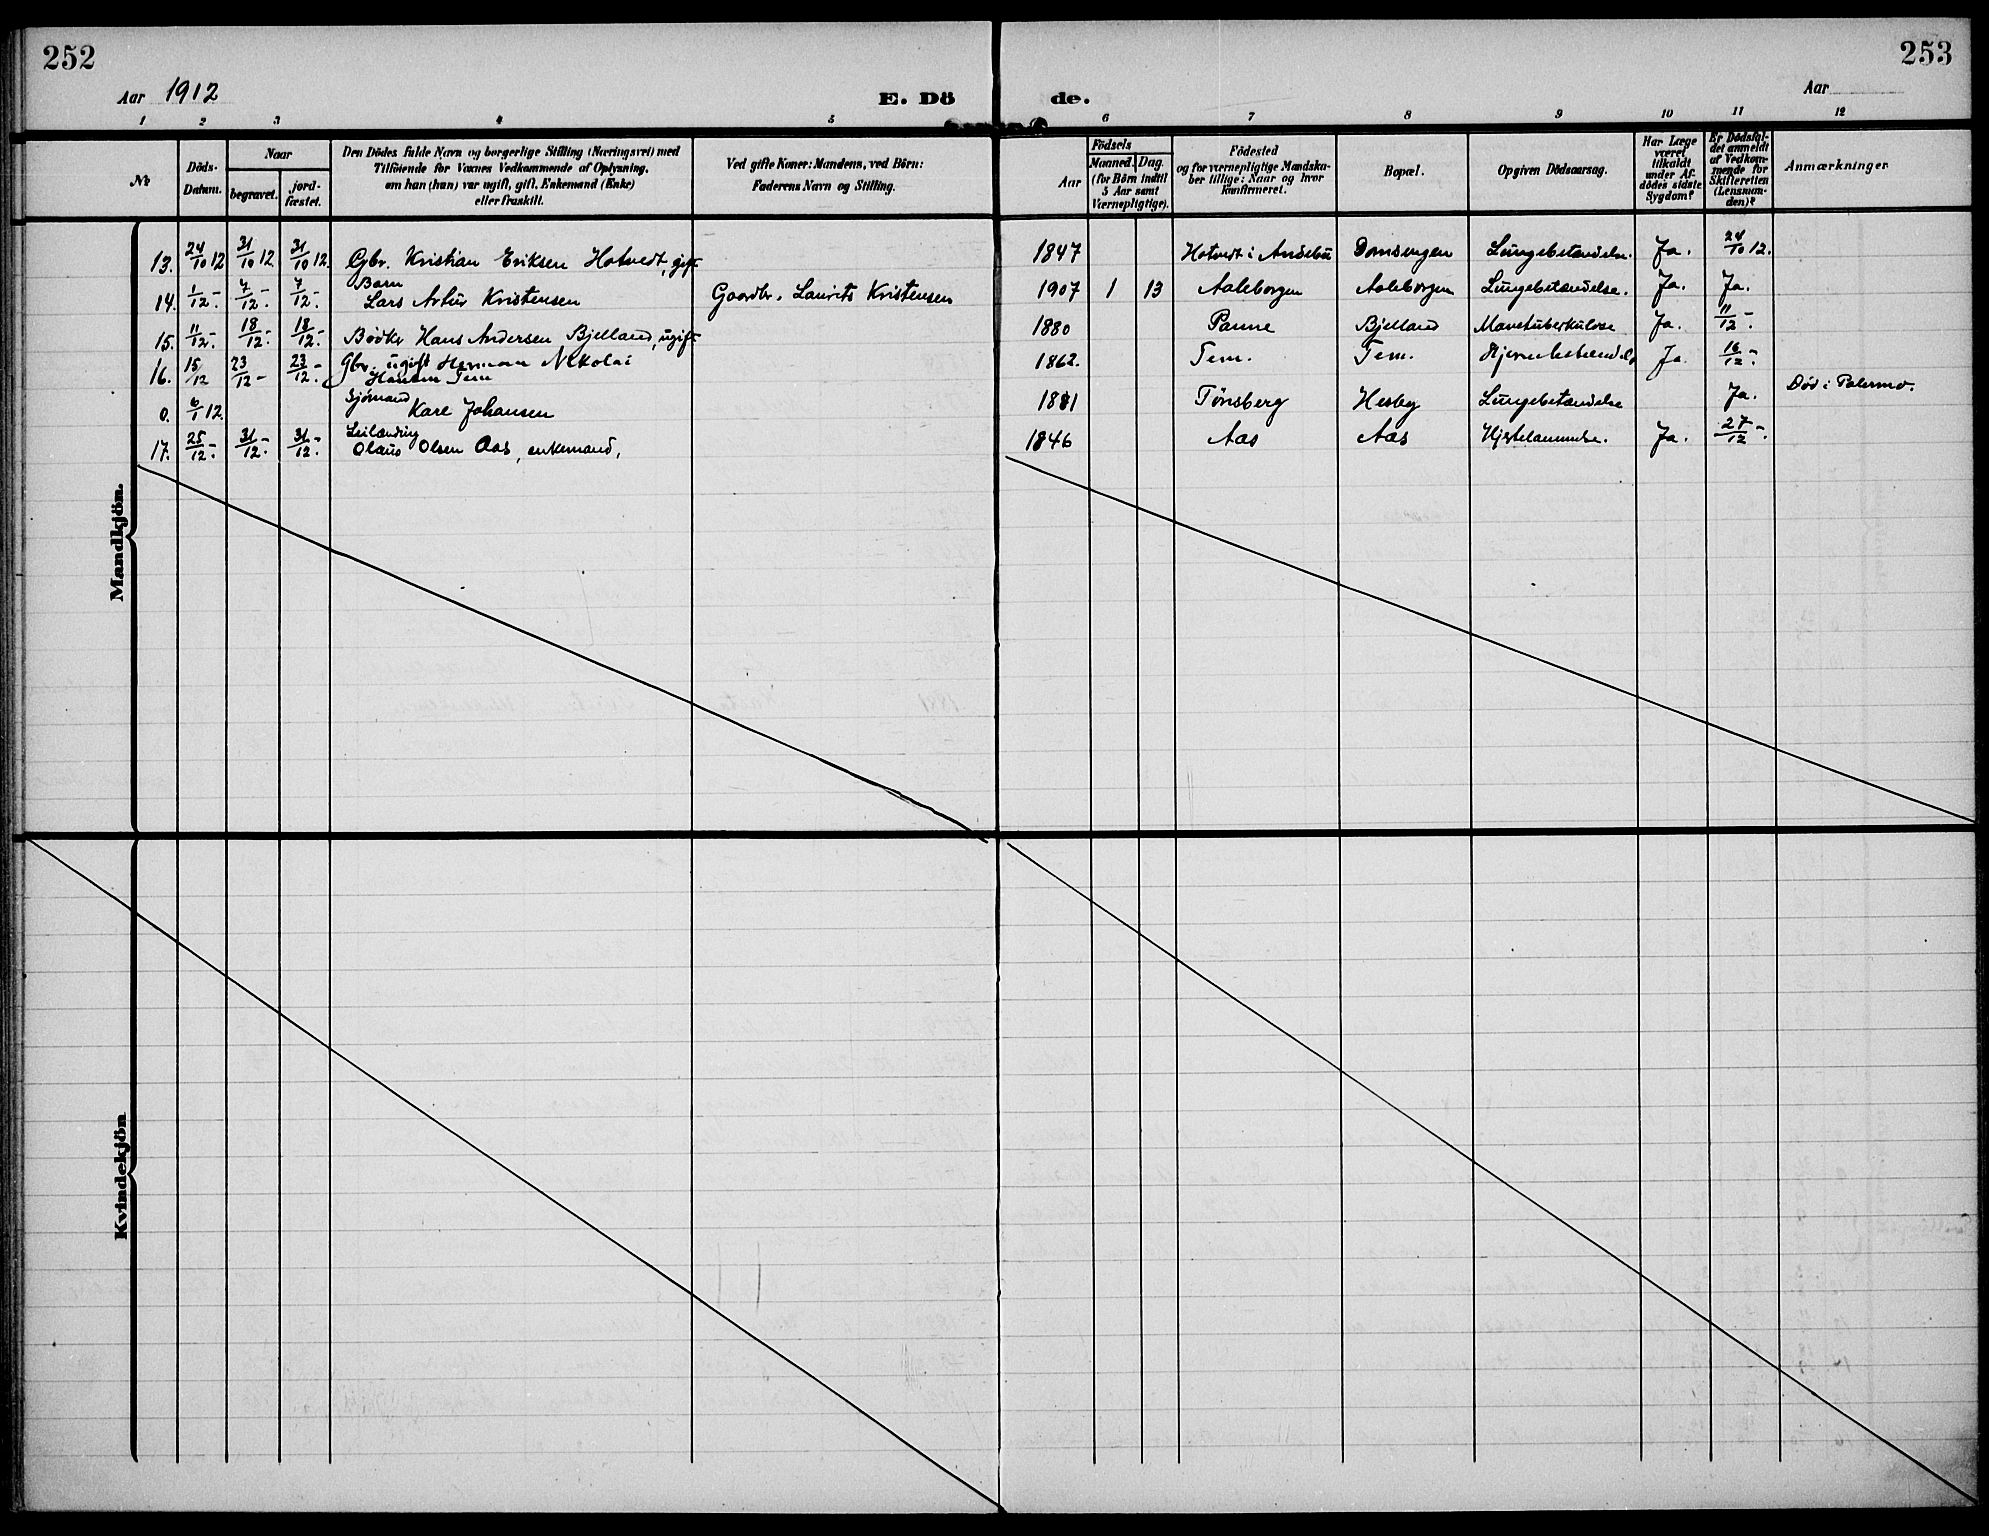 252
253
Aar 1912
E. Dö de.
Aar
1 2 3 4 5 6 7 8 9 10 11 12
№
Döds-
Datum.
Naar
begravet.
jord-
fæstet.
Den Dödes fulde Navn og borgerlige Stilling (Næringsvei) med
Tilföiende for Voxnes Vedkommende af Oplysning,
om han (hun) var ugift, gift, Enkemand (Enke)
eller fraskilt.
Ved gifte Koner: Mandens, ved Börn:
Faderens Navn og Stilling.
Födsels
Aar
Maaned. Dag.
(for Börn indtil
5 Aar samt
Værnepligtige).
Födested
og for værnepligtige Mandska-
ber tillige: Naar og hvor
Konfirmeret.
Bopæl.
Opgiven Dödsaarsag.
Har Læge
været
tilkaldt
under Af-
dödes sidste
Sygdom?
Er Dödsfal-
det anmeldt
af Vedkom-
mende for
Skifteretten
(Lensman-
den)?
Anmærkninger
13. 24/10 12 31/10 12. 31/10 12. Gbr. Kristian Eriksen Hotvedt, gift 1847 Hotvedt i Andebu Domsengen Lungebetændelse. Ja. 24/10 12.
Barn
14. 1/12 - 7/12 - 7/12 - Lars Artur Kristensen Gaardbr. Laurits Kristensen 1907 1 13 Aaleborgen Aaleborgen Lungebetændelse. Ja. Ja.
15. 11/12 - 18/12 - 18/12 - Bödker Hans Andersen Bjelland, ugift 1880 Panne Bjelland Mavetuberkulose Ja. 11/12 -
16. 15/12 23/12 - 23/12 - Gbr. ugift Herman Nikolai 1862. Tem. Tem. Ja. 16/12 -
Hansen Tem
Sjömand
0. 6/1 12. Kare Johansen 1881 Tönsberg Hesby Lungebetændelse Ja. Död i Palermo.
Leilænding
17. 25/12 - 31/12 - 31/12 - Olaus Olsen Aas, enkemand, 1846 Aas Aas Hjertelammelse. Ja. 27/12 -
Mandkjön.
Kvindekjön